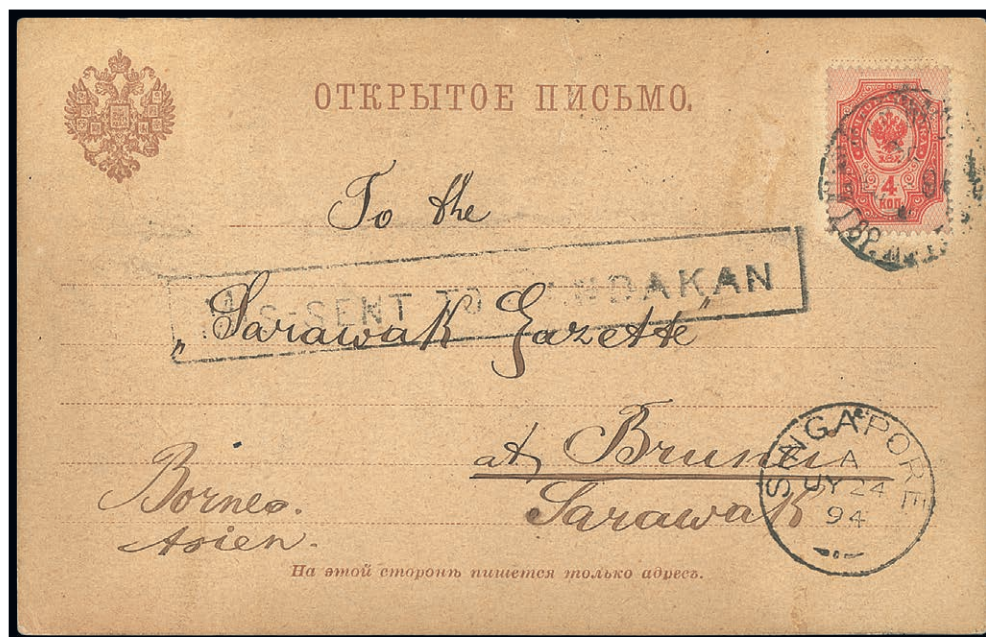 ОТКРЫТОЕ ПИСЬМО.
4
КОП
To the
MIS-SENT TO SANDAKAN
„Sarawak Gazette"
at Brunei
Sarawak
Borneo.
Asien.
SINGAPORE
A
JY 24
94
На этой сторонѣ пишется только адресъ.